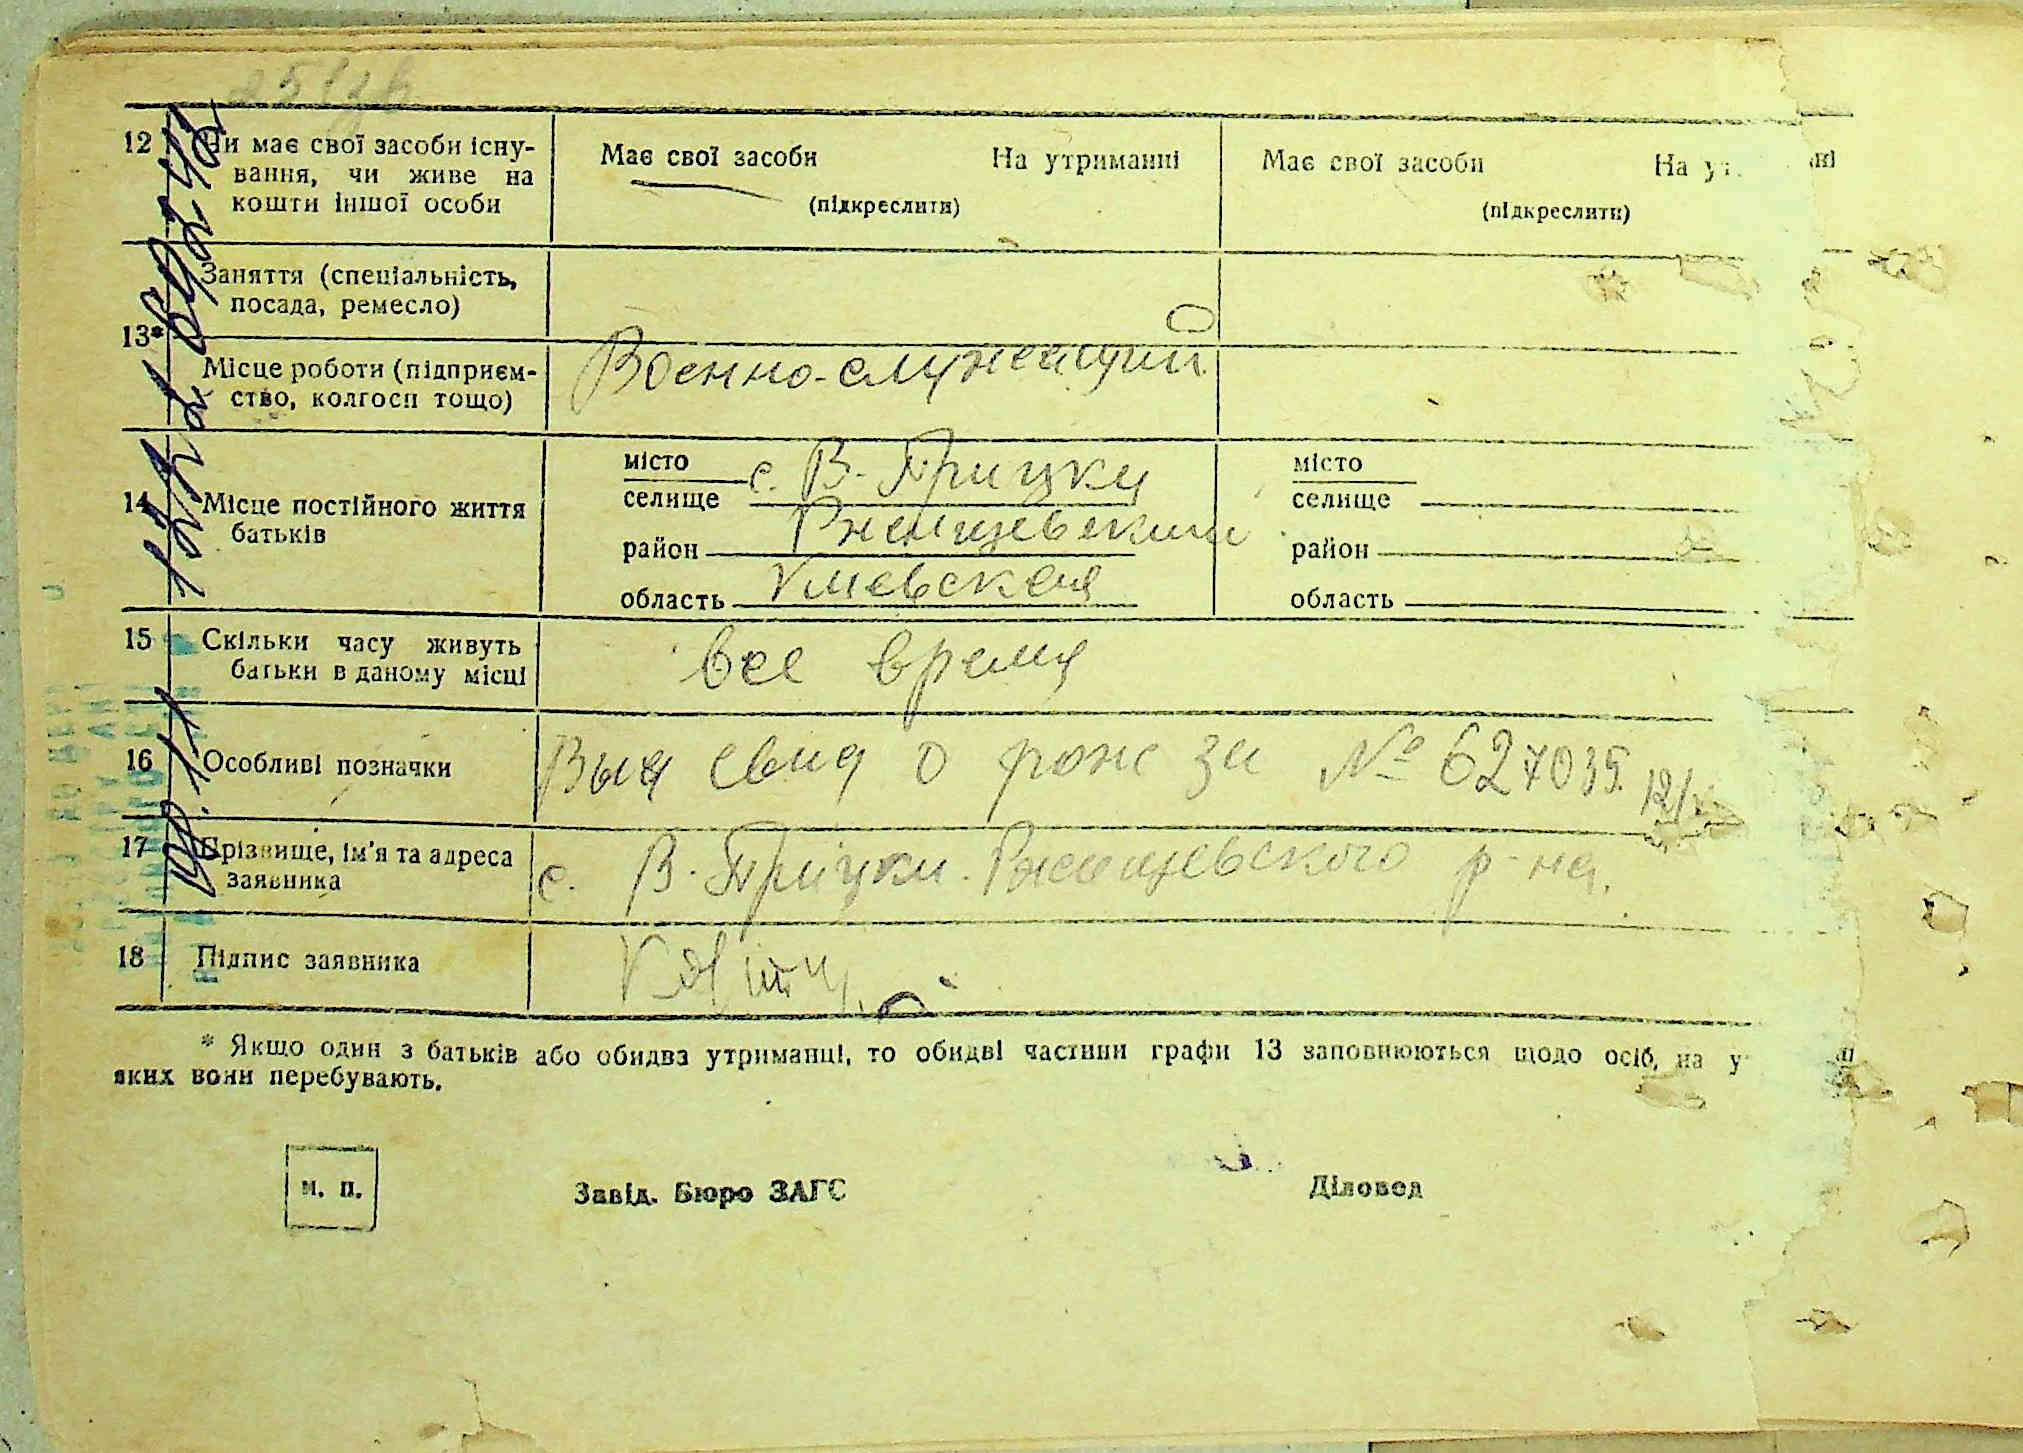 12 Чи має свої засоби існу-
вання, чи живе на
кошти іншої особи
Має свої засоби На утриманні
(підкреслити)
Має свої засоби На ут
(підкреслити)
13*
Заняття (спеціальність,
посада, ремесло)
Місце роботи (підприєм-
ство, колгосп тощо)
Военно-служащий
14 Місце постійного життя
батьків
місто
селище с. В-Прицки
район Ржищевский
область Киевская
місто
селище
район
область
15 Скільки часу живуть
батьки в даному місці
все время
16 Особливі позначки
Выд свид о рож за № 627035.
17 Прізвище, ім'я та адреса
заявника
с. В. Прицки. Ржищевского р-на.
18 Підпис заявника
* Якщо один з батьків або обидва утриманці, то обидві частини графи 13 заповнюються щодо осіб, на у
яких вони перебувають.
м. п.
Завід. Бюро ЗАГС
Діловод